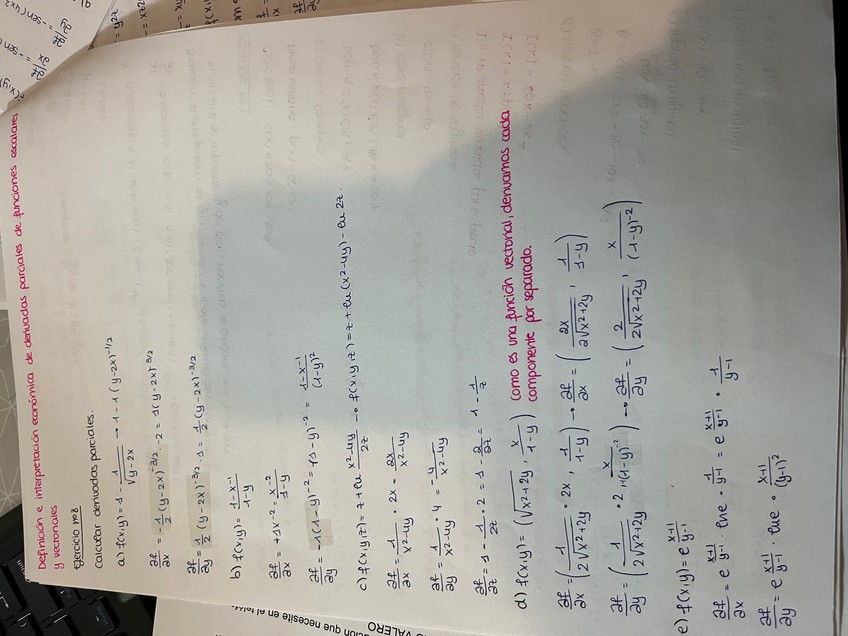 Definición e interpretación económica de derivadas parciales de funciones escalares
y vectoriales
Ejercicio nº8
Calcular derivadas parciales.
a) f(x,y) = 1 - 1/√(y-2x) → 1 - 1(y-2x)^-1/2
∂f/∂x = -1/2 (y-2x)^-3/2 · -2 = 1(y-2x)^-3/2
∂f/∂y = 1/2 (y-2x)^-3/2 · 1 = 1/2 (y-2x)^-3/2
b) f(x,y) = (1-x^-1)/(1-y)
∂f/∂x = +1x^-2 = x^-2/(1-y)
∂f/∂y = -1(1-y)^-2 = (1-x^-1)/(1-y)^2
c) f(x,y,z) = z + ln (x²-4y)/2z → f(x,y,z) = z + ln(x²-4y) - ln 2z.
∂f/∂x = 1/(x²-4y) · 2x = 2x/(x²-4y)
∂f/∂y = 1/(x²-4y) · 4 = -4/(x²-4y)
∂f/∂z = 1 - 1/2z · 2 = 1 - 2/2z = 1 - 1/z
d) f(x,y) = (√(x²+2y) · x/(1-y)) como es una función vectorial, derivamos cada
componente por separado.
∂f/∂x = (1/(2√(x²+2y)) · 2x, 1/(1-y)) → ∂f/∂x = (2x/(2√(x²+2y)), 1/(1-y))
∂f/∂y = (1/(2√(x²+2y)) · 2, x/(1-y)^-2) → ∂f/∂y = (2/(2√(x²+2y)), x/(1-y)^-2)
e) f(x,y) = e^((x+1)/(y-1))
∂f/∂x = e^((x+1)/(y-1)) · lne · 1/(y-1) = e^((x+1)/(y-1)) · 1/(y-1)
∂f/∂y = e^((x+1)/(y-1)) · lne · (x+1)/(y-1)²
VALERO
que necesite al